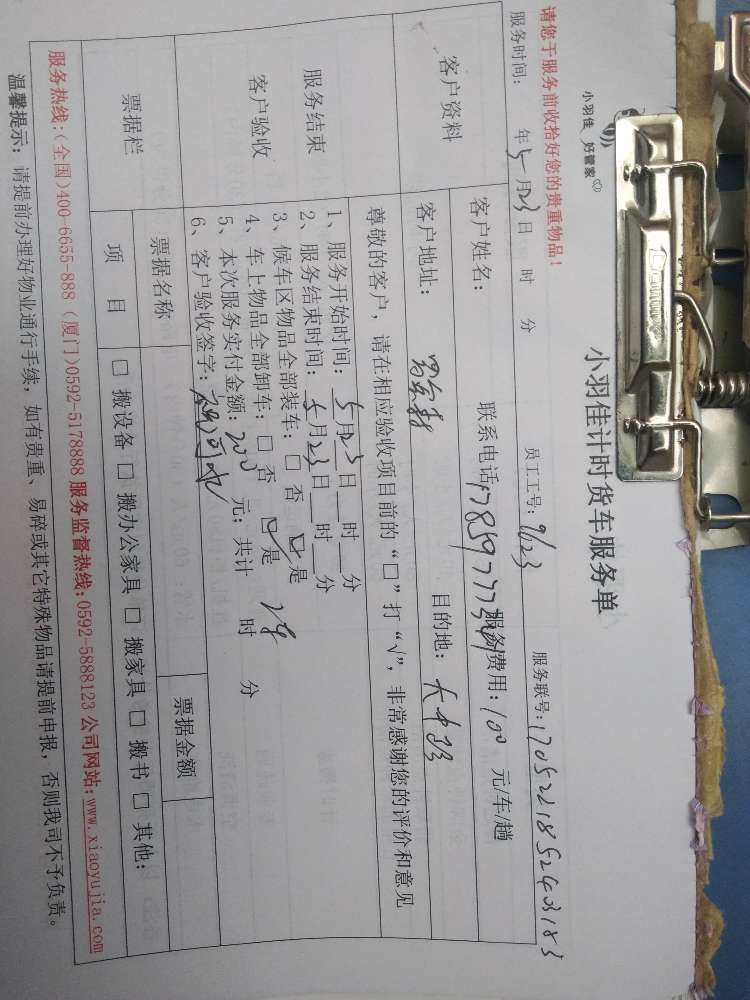 小羽佳 好管家
小羽佳计时货车服务单
请您于服务前收拾好您的贵重物品！
服务时间： 年5月23日 时 分 员工工号：9623 服务联号：1705221852403185
客户资料
客户姓名： 联系电话 服务费用：100 元/车/趟
客户地址： 目的地：
尊敬的客户，请在相应验收项目前的“□”打“√”，非常感谢您的评价和意见
服务结束
客户验收
1、服务开始时间：5月23日__时__分
2、服务结束时间：5月23日__时__分
3、候车区物品全部装车：□ 否 ☑是
4、车上物品全部卸车：□ 否 ☑是
5、本次服务实付金额：200 元；共计 时 分
6、客户验收签字：
票据栏
票据名称 票据金额
项 目 □ 搬设备 □ 搬办公家具 □ 搬家具 □ 搬书 □ 其他：
服务热线：(全国)400-6655-888（厦门)0592-5178888 服务监督热线：0592-5888123 公司网站：www.xiaoyujia.com
温馨提示：请提前办理好物业通行手续，如有贵重、易碎或其它特殊物品请提前申报，否则我司不予负责。